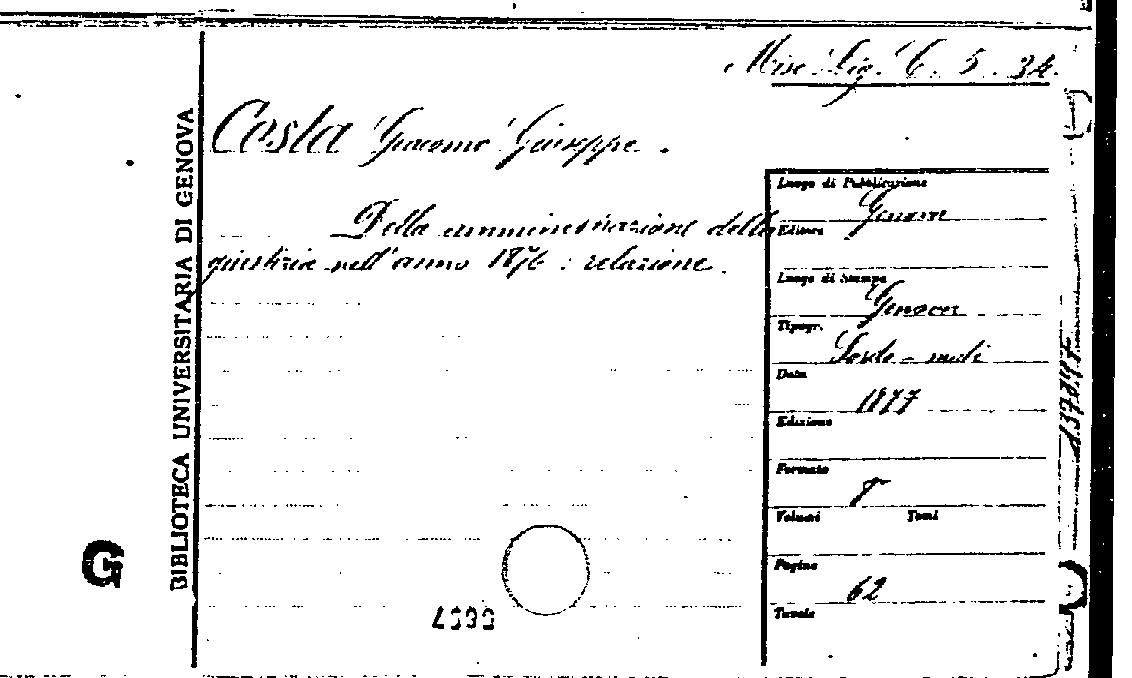 Misc. Lig. C. 5. 34.
Costa Giacomo Giuseppe.
Della amministrazione della
giustizia nell'anno 1876 : relazione.
BIBLIOTECA UNIVERSITARIA DI GENOVA
G
Luogo di Pubblicazione
Genova
Editore
Luogo di Stampa
Genova
Tipogr.
Sordo-muti
Data
1877
Edizione
Formato
8
Volumi Tomi
Pagine
62
Tavole